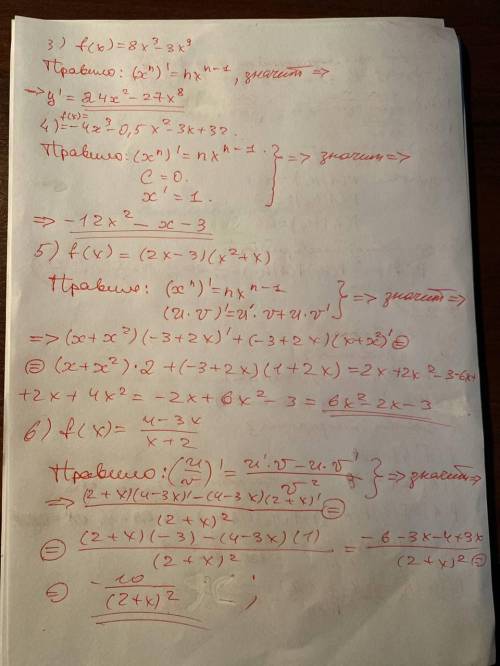 3) f(x)=8x³-3x⁹
Правило: (xⁿ)'=nxⁿ⁻¹, значит =>
->y'=24x²-27x⁸
4) f(x)= =-4x³-0,5x²-3x+32.
Правило: (xⁿ)'=nxⁿ⁻¹. } => значит =>
C=0.
x'=1.
=> -12x²-x-3
5) f(x)=(2x-3)(x²+x)
Правило: (xⁿ)'=nxⁿ⁻¹
(u·v)'=u'·v+u·v' } => значит =>
=> (x+x²)(-3+2x)'+(-3+2x)(x+x²)' =
= (x+x²)·2+(-3+2x)(1+2x)=2x+2x²-3-6x+
+2x+4x²=-2x+6x²-3=6x²-2x-3
6) f(x)=(4-3x)/(x+2)
Правило: (u/v)'=(u'·v-u·v')/v² } => значит =>
=> ((2+x)(4-3x)'-(4-3x)(2+x)')/(2+x)² =
= ((2+x)(-3)-(4-3x)(1))/(2+x)² = (-6-3x-4+3x)/(2+x)² =
= -10/(2+x)² ;